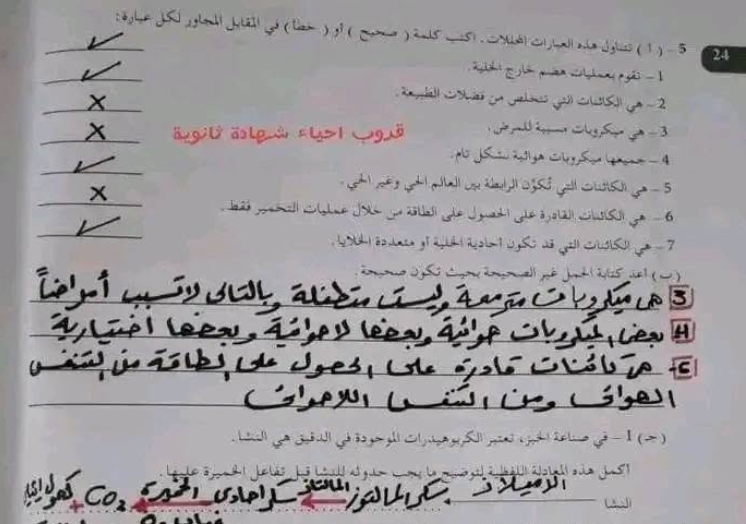 24
5 – ( أ ) تتناول هذه العبارات المحللات. اكتب كلمة ( صحيح ) أو ( خطأ ) في المقابل المجاور لكل عبارة:
1 – تقوم بعمليات هضم خارج الخلية. ✓
2 – هي الكائنات التي تتخلص من فضلات الطبيعة. ✓
3 – هي ميكروبات مسببة للمرض. ×
قروب احياء شهادة ثانوية
4 – جميعها ميكروبات هوائية بشكل تام. ×
5 – هي الكائنات التي تُكوِّن الرابطة بين العالم الحي وغير الحي. ✓
6 – هي الكائنات القادرة على الحصول على الطاقة من خلال عمليات التخمير فقط. ×
7 – هي الكائنات التي قد تكون أحادية الخلية أو متعددة الخلايا. ✓
(ب) أعد كتابة الجمل غير الصحيحة بحيث تكون صحيحة.
هي ميكروبات مترممة وليست متطفلة وبالتالي لاتسبب أمراضاً
بعض الميكروبات هوائية وبعضها لاهوائية وبعضها اختيارية
هي كائنات قادرة على الحصول على الطاقة من التنفس
الهوائي ومن التنفس اللاهوائي
(جـ) 1 – في صناعة الخبز، تعتبر الكربوهيدرات الموجودة في الدقيق هي النشا.
اكمل هذه المعادلة اللفظية لتوضيح ما يجب حدوثه للنشا قبل تفاعل الخميرة عليها.
النشا الاميلاز سكر المالتوز المالتاز سكر احادي الخميرة CO₂ +